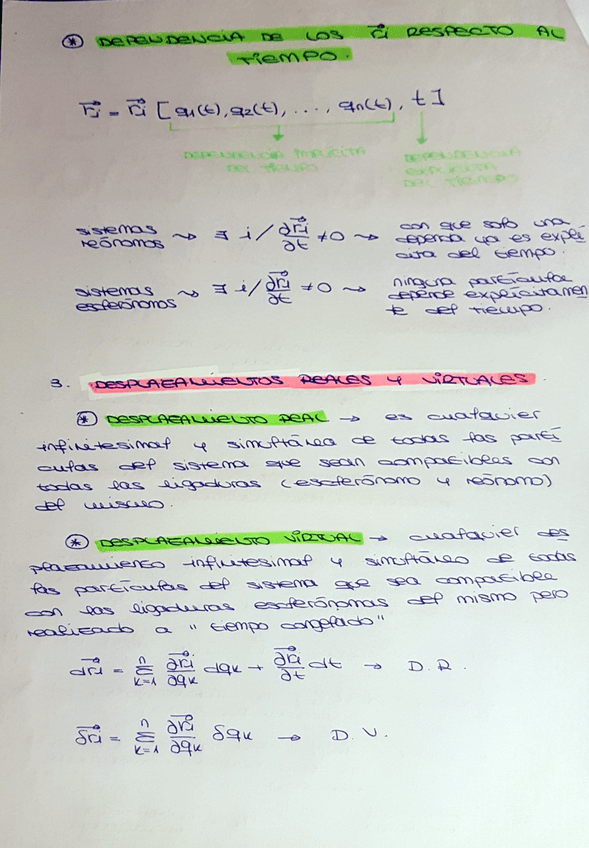 * DEPENDENCIA DE LOS r⃗i RESPECTO AL
TIEMPO.
r⃗i = r⃗i [q1(t), q2(t), ..., qn(t), t]
DEPENDENCIA IMPLÍCITA
DEL TIEMPO
DEPENDENCIA
EXPLÍCITA
DEL TIEMPO
sistemas
reónomos ⇝ ∃ i / ∂r⃗i/∂t ≠ 0 ⇝ con que solo una
dependa ya es explí
cita del tiempo.
sistemas
esclerónomos ⇝ ∃ i / ∂r⃗i/∂t ≠ 0 ⇝ ninguna partícula
depende explícitamen
te del tiempo.
3. DESPLAZAMIENTOS REALES Y VIRTUALES
* DESPLAZAMIENTO REAL → es cualquier
infinitesimal y simultánea de todas las partí
culas del sistema que sean compatibles con
todas las ligaduras (esclerónomo y reónomo)
del mismo.
* DESPLAZAMIENTO VIRTUAL → cualquier des
plazamiento infinitesimal y simultáneo de todas
las partículas del sistema que sea compatible
con las ligaduras esclerónomas del mismo pero
realizado a "tiempo congelado"
dr⃗i = Σ_{k=1}^{n} ∂r⃗i/∂qk dqk + ∂r⃗i/∂t dt → D.R.
δr⃗i = Σ_{k=1}^{n} ∂r⃗i/∂qk δqk → D.V.